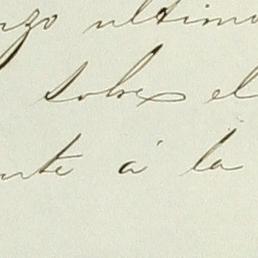 nzo ultimo
sobre el
nte á la